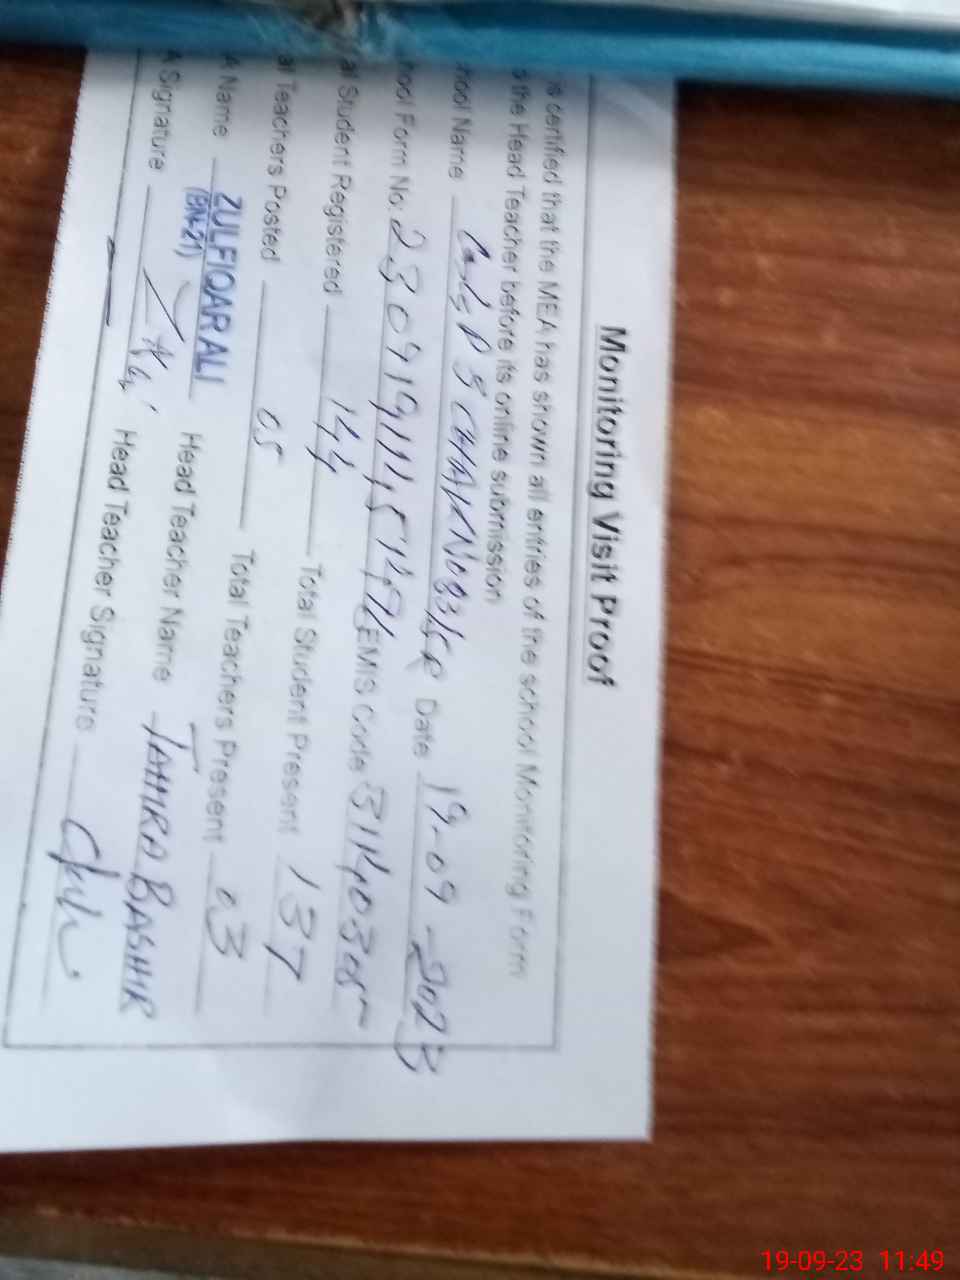 Monitoring Visit Proof
is certified that the MEA has shown all entries of the school Monitoring Form
the Head Teacher before its online submission
hool Name CHAK NO 83/5R Date 19-09-2023
hool Form No. EMIS Code 31140305
al Student Registered 144 Total Student Present 137
al Teachers Posted 05 Total Teachers Present 03
A Name ZULFIQAR ALI Head Teacher Name TAHIRA BASHIR
(BN-21)
A Signature Head Teacher Signature
19-09-23 11:49